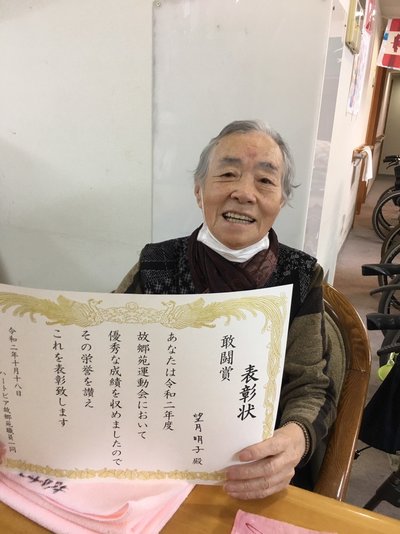 表彰状
敢闘賞
望月明子 殿
あなたは令和二年度
故郷苑運動会において
優秀な成績を収めましたので
その栄誉を讃え
これを表彰致します
令和二年十月十八日
ハートピア故郷苑職員一同